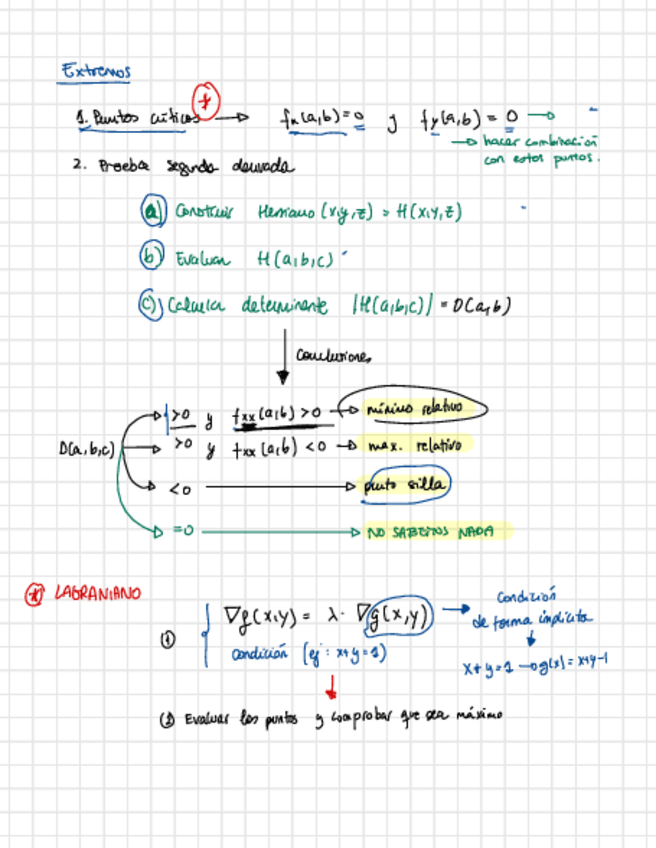 Extremos
1. Puntos críticos * → fx(a,b)=0 y fy(a,b)=0 →
→ hacer combinación
con estos puntos.
2. Prueba segunda derivada
a) Construir Hessiano (x,y,z) = H(x,y,z)
b) Evaluar H(a,b,c)
c) Calcular determinante |H(a,b,c)| = D(a,b)
Conclusiones
>0 y fxx(a,b)>0 → mínimo relativo
D(a,b,c) >0 y fxx(a,b)<0 → max. relativo
<0 → punto silla
=0 → NO SABEMOS NADA
* LAGRANIANO
① ∇f(x,y) = λ · ∇g(x,y) → Condición
de forma implícita
condición (ej: x+y=1)
x+y=1 → g(x)=x+y-1
② Evaluar los puntos y comprobar que sea máximo